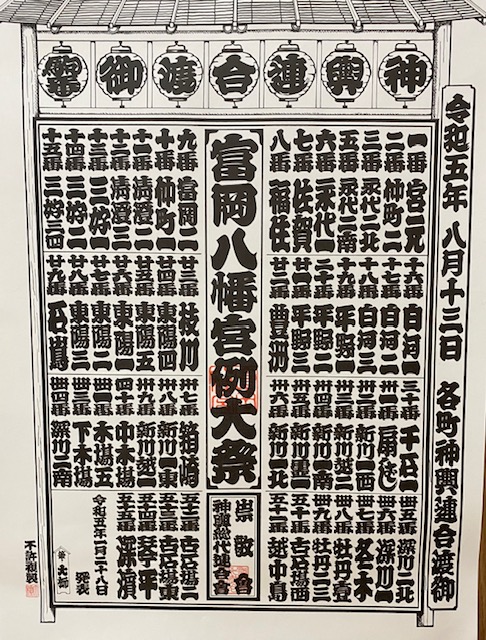 神輿連合渡御
令和五年 八月十三日 各町神輿連合渡御
富岡八幡宮例大祭
一番 宮元
二番 仲町二
三番 永代二北
五番 永代二南
六番 永代一
七番 佐賀
八番 福住
九番 富岡二
十番 仲町一
十一番 清澄二
十二番 清澄三
十三番 三好一
十四番 三好二
十五番 三好三四
十六番 白河一
十七番 白河二
十八番 白河三
十九番 平野一
二十番 平野二
廿一番 平野三
廿二番 豊洲
廿三番 枝川
廿四番 東陽四
廿五番 東陽五
廿六番 東陽一
廿七番 東陽二
廿八番 東陽三
廿九番 石島
三十番 千石一
卅一番 扇ばし
卅二番 新川一西
卅三番 新川越二
卅四番 新川一南
卅五番
卅六番 新川一北
卅七番 箱崎
卅八番 新川一東
卅九番 新川越一
四十番 中木場
卌一番 木場五
卌三番 下木場
卌四番 深川二南
卌五番 深川二北
卌六番 深川一
卌七番 冬木
卌八番 牡丹壹
卌九番 牡丹二三
五十番 古石場西
五十一番 越中島
崇敬会
神輿総代連合会
五十二番 古石場二
五十三番 古石場東
五十四番 琴平
五十五番 深濱
令和五年一月二十八日
発表
不許複製